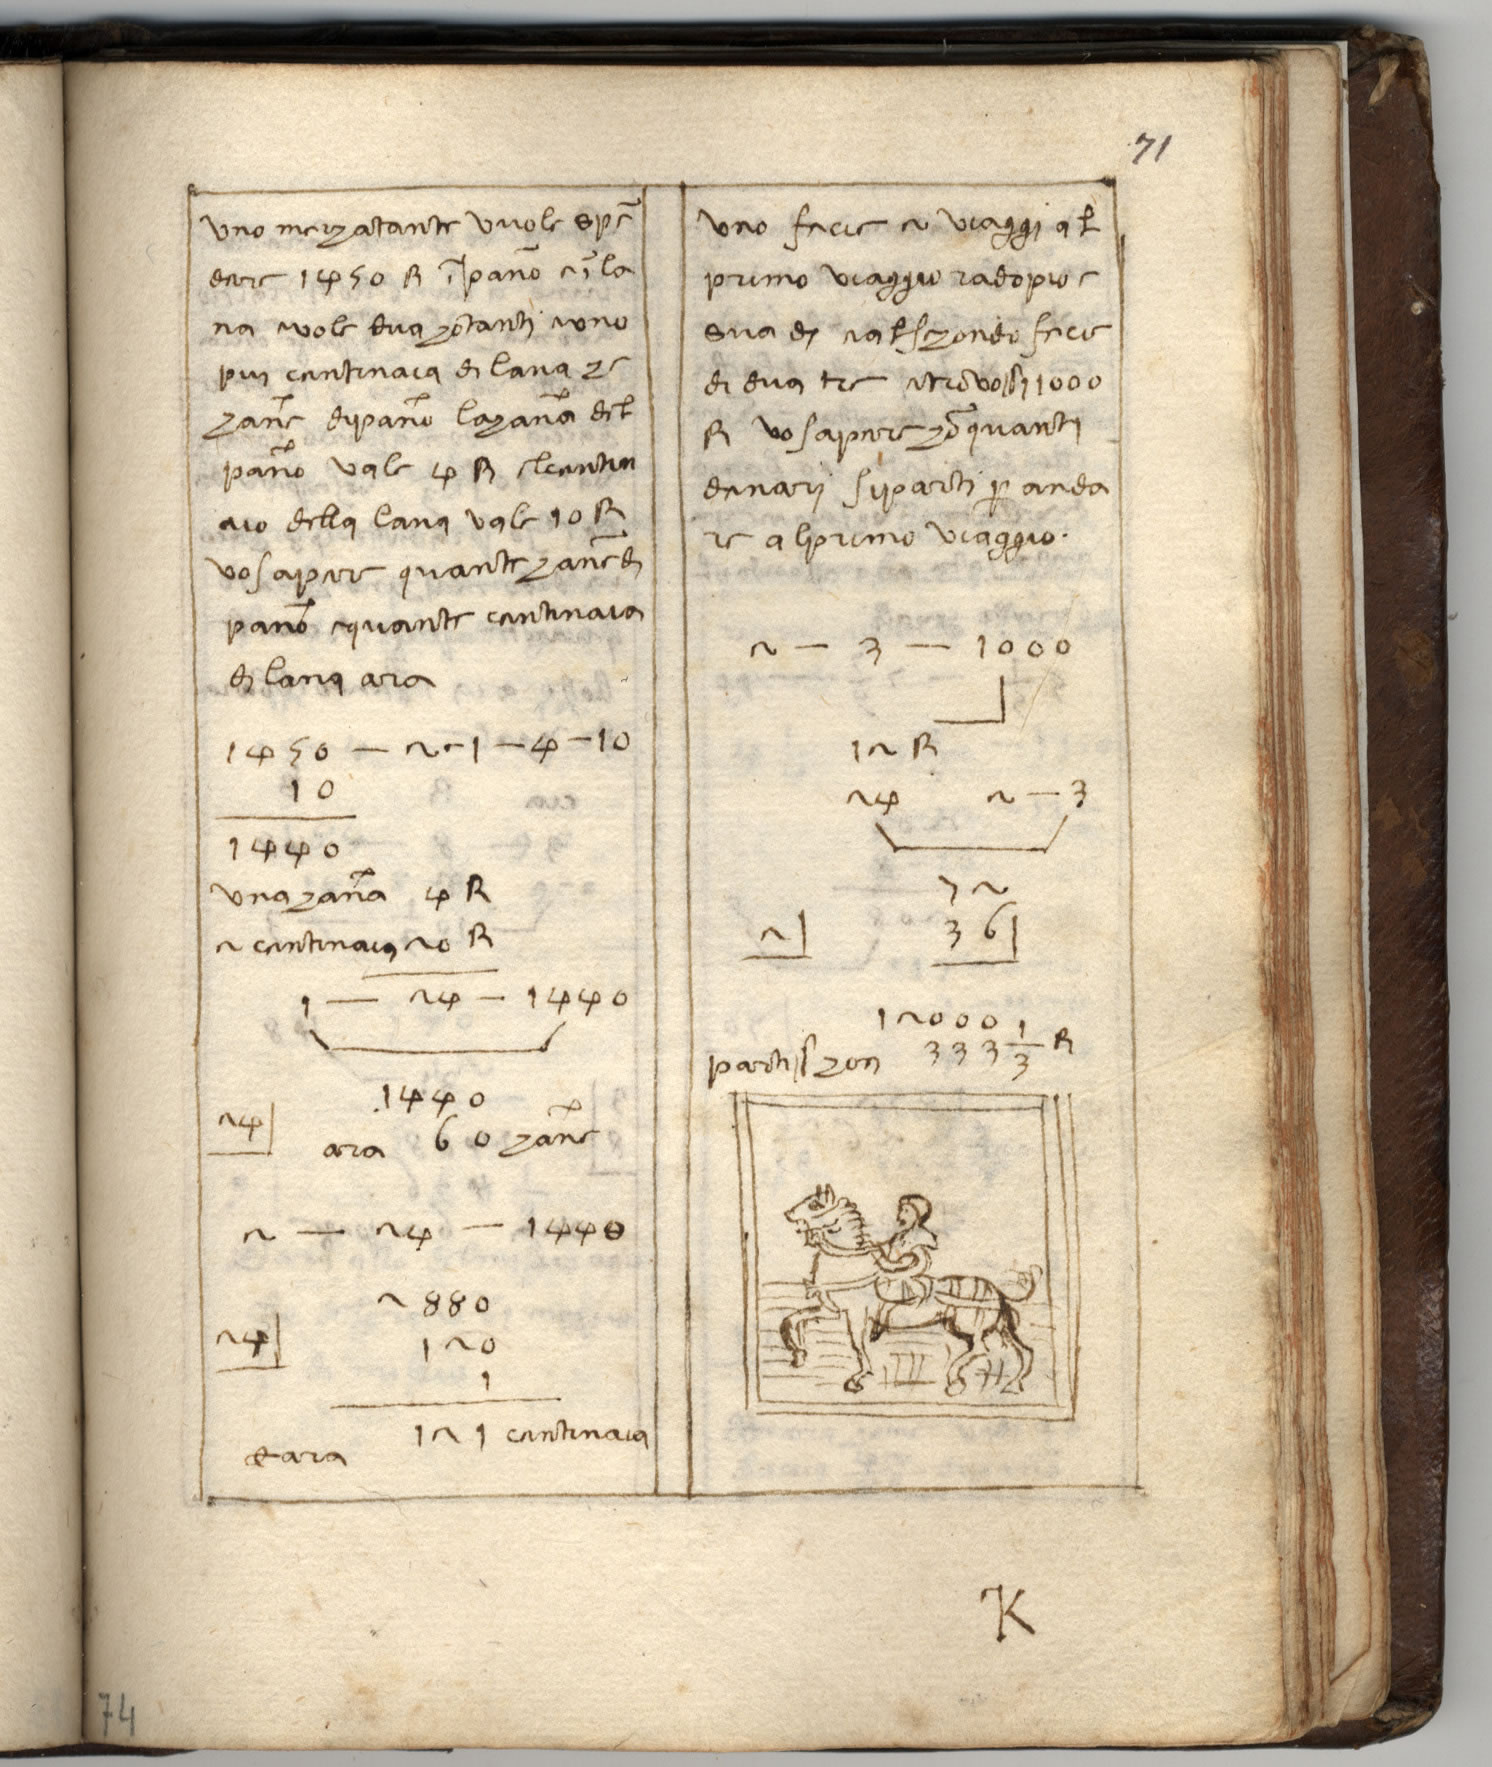 71
uno merzatante vuole spē
dere 1450 R ī pano e ī la
na vole dua zotanti e uno
piu centinaia di lana ze
zane di pano la zana del
pano vale 4 R el centin
aio della lana vale 10 R
vo sapere quante zane di
pano e quante centinaia
di lana ara
1450 — 2 - 1 — 4 — 10
10
1440
una zana 4 R
2 centinaia 20 R
1 — 24 — 1440
1440
24
ara 60 zane
2 — 24 — 1440
2880
24 120
1
121 centinaia
e ara
uno fecie 2 viaggi al
primo viaggio radopio e
sua di nal sezondo fecie
di dua tre e trovossi 1000
R vo sapere zō quanti
denari si parti p anda
re al primo viaggio.
2 — 3 — 1000
12 R
24 2 — 3
72
2 36
12000
partissi zon 333 1/3 R
K
74